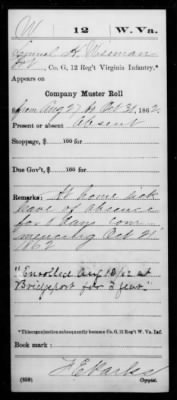 W 12 W. Va.
Samuel H. Wiseman
Pvt, Co. G, 12 Reg't Virginia Infantry.*
Appears on
Company Muster Roll
for from Aug 27 to Oct 31, 1862.
Present or absent Absent
Stoppage, $ 100 for
Due Gov't, $ 100 for
Remarks: At home sick
leave of absence
for days com
mencing Oct 21
1862
"Enrolled Aug 18/62 at
Bridgeport for 3 years."
*This organization subsequently became Co. G, 12 Reg't W. Va. Inf.
Book mark:
(358) Copyist.